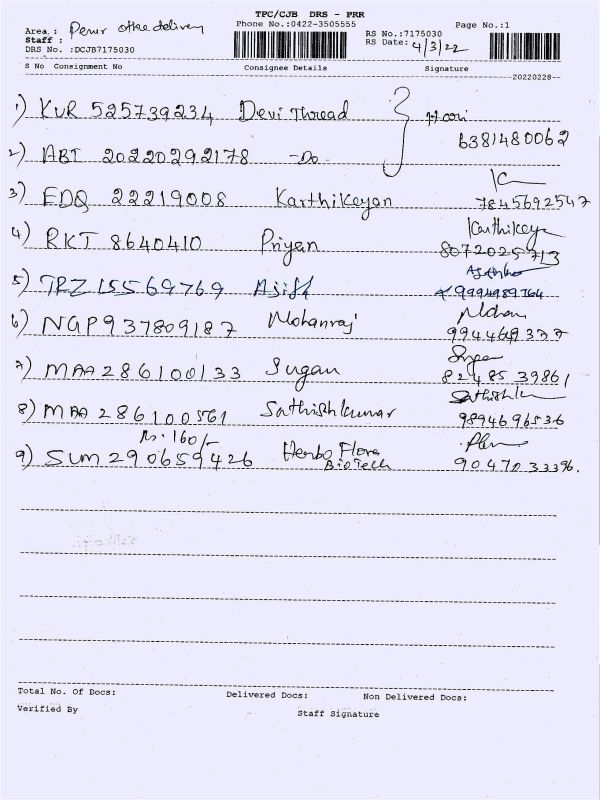 TPC/CJB DRS - PRR
Area : Perur office delivery Phone No.:0422-3505555 Page No.:1
Staff : RS No.:7175030
DRS No. :DCJB7175030 RS Date: 4/3/22
S No Consignment No Consignee Details Signature
20220228--
1) KUR 525739234 Devi Thread Hari
6381480062
2) ABT 20220292178 -Do-
3) EDQ 22219008 Karthikeyan 7845692547
4) RKT 8640410 Priyan Karthikeya
8072025713
5) TRZ 15569769 Asiff
9994989764
6) NGP 937809187 Mohanraj Mohan
994469377
7) MAA 286100133 Sugan
82485 39861
8) MAA 286100561 Sathishkumar Sathishku
9894696536
Rs. 160/-
9) SUM 290659426 Herbo Flora
BioTech 9047033396.
Total No. Of Docs: Delivered Docs: Non Delivered Docs:
Verified By Staff Signature